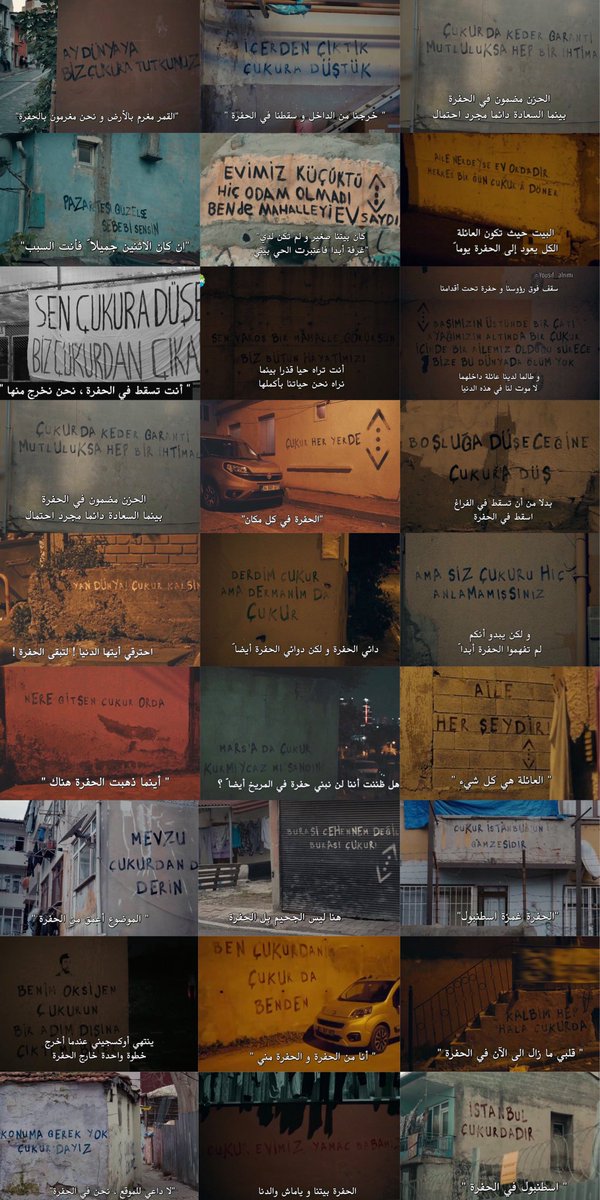 AY DÜNYAYA
BİZ ÇUKURA TUTKUNUZ
"القمر مغرم بالأرض و نحن مغرمون بالحفرة"
İÇERDEN ÇIKTIK
ÇUKURA DÜŞTÜK
" خرجنا من الداخل و سقطنا في الحفرة "
ÇUKURDA KEDER GARANTİ
MUTLULUKSA HEP BİR İHTİMA
الحزن مضمون في الحفرة
بينما السعادة دائما مجرد احتمال
PAZARTESİ GÜZELSE
SEBEBİ SENSİN
"ان كان الاثنين جميلاً فأنت السبب"
EVİMİZ KÜÇÜKTÜ
HİÇ ODAM OLMADI
BENDE MAHALLEYİ EV SAYDI
كان بيتنا صغير و لم تكن لدي
غرفة أبدا فاعتبرت الحي بيتي
AİLE NERDEYSE EV ORDADIR
HERKES BİR GÜN ÇUKURA DÖNER
البيت حيث تكون العائلة
الكل يعود إلى الحفرة يوماً
SEN ÇUKURA DÜŞE
BİZ ÇUKURDAN ÇIKA
" أنت تسقط في الحفرة ، نحن نخرج منها "
BİR MAHALLE GÖRÜRSÜN
BİZ BÜTÜN HAYATIMIZI
أنت تراه حيا قذرا بينما
نراه نحن حياتنا بأكملها
سقف فوق رؤوسنا و حفرة تحت أقدامنا
BAŞIMIZIN ÜSTÜNDE BİR ÇATI
AYAĞIMIZIN ALTINDA BİR ÇUKUR
İÇİNDE BİR AİLEMİZ OLDUĞU SÜRECE
BİZE BU DÜNYADA ÖLÜM YOK
و طالما لدينا عائلة داخلهما
لا موت لنا في هذه الدنيا
ÇUKURDA KEDER GARANTİ
MUTLULUKSA HEP BİR İHTİMAL
الحزن مضمون في الحفرة
بينما السعادة دائما مجرد احتمال
ÇUKUR HER YERDE
"الحفرة في كل مكان"
BOŞLUĞA DÜŞECEĞİNE
ÇUKURA DÜŞ
بدلا من أن تسقط في الفراغ
اسقط في الحفرة
YAN DÜNYA! ÇUKUR KALSIN
احترقي أيتها الدنيا ! لتبقى الحفرة !
DERDİM ÇUKUR
AMA DERMANIM DA
ÇUKUR
دائي الحفرة و لكن دوائي الحفرة أيضاً
AMA SİZ ÇUKURU HİÇ
ANLAMAMIŞSINIZ
و لكن يبدو أنكم
لم تفهموا الحفرة أبداً
NERE GİTSEN ÇUKUR ORDA
" أينما ذهبت الحفرة هناك "
MARS'A DA ÇUKUR
KURMIYCAZ MI SANDIN
هل ظننت أننا لن نبني حفرة في المريخ أيضاً ؟
AİLE
HER ŞEYDİR!
" العائلة هي كل شيء "
MEVZU
ÇUKURDAN D
DERİN
" الموضوع أعمق من الحفرة "
BURASI CEHENNEM DEĞİL
BURASI ÇUKUR!
هنا ليس الجحيم بل الحفرة
ÇUKUR İSTANBUL'UN
GAMZESİDİR
"الحفرة غمزة اسطنبول"
BENİM OKSİJEN
ÇUKURUN
BİR ADIM DIŞINA
ÇIK
ينتهي أوكسجيني عندما أخرج
خطوة واحدة خارج الحفرة
BEN ÇUKURDANIM
ÇUKUR DA
BENDEN
" أنا من الحفرة و الحفرة مني "
KALBİM HEP
HALA ÇUKURDA
" قلبي ما زال الى الآن في الحفرة "
KONUMA GEREK YOK
ÇUKURDAYIZ
"لا داعي للموقع ، نحن في الحفرة"
ÇUKUR EVİMİZ YAMAÇ BABAMIZ
الحفرة بيتنا و ياماش والدنا
İSTANBUL
ÇUKURDADIR
" اسطنبول في الحفرة "